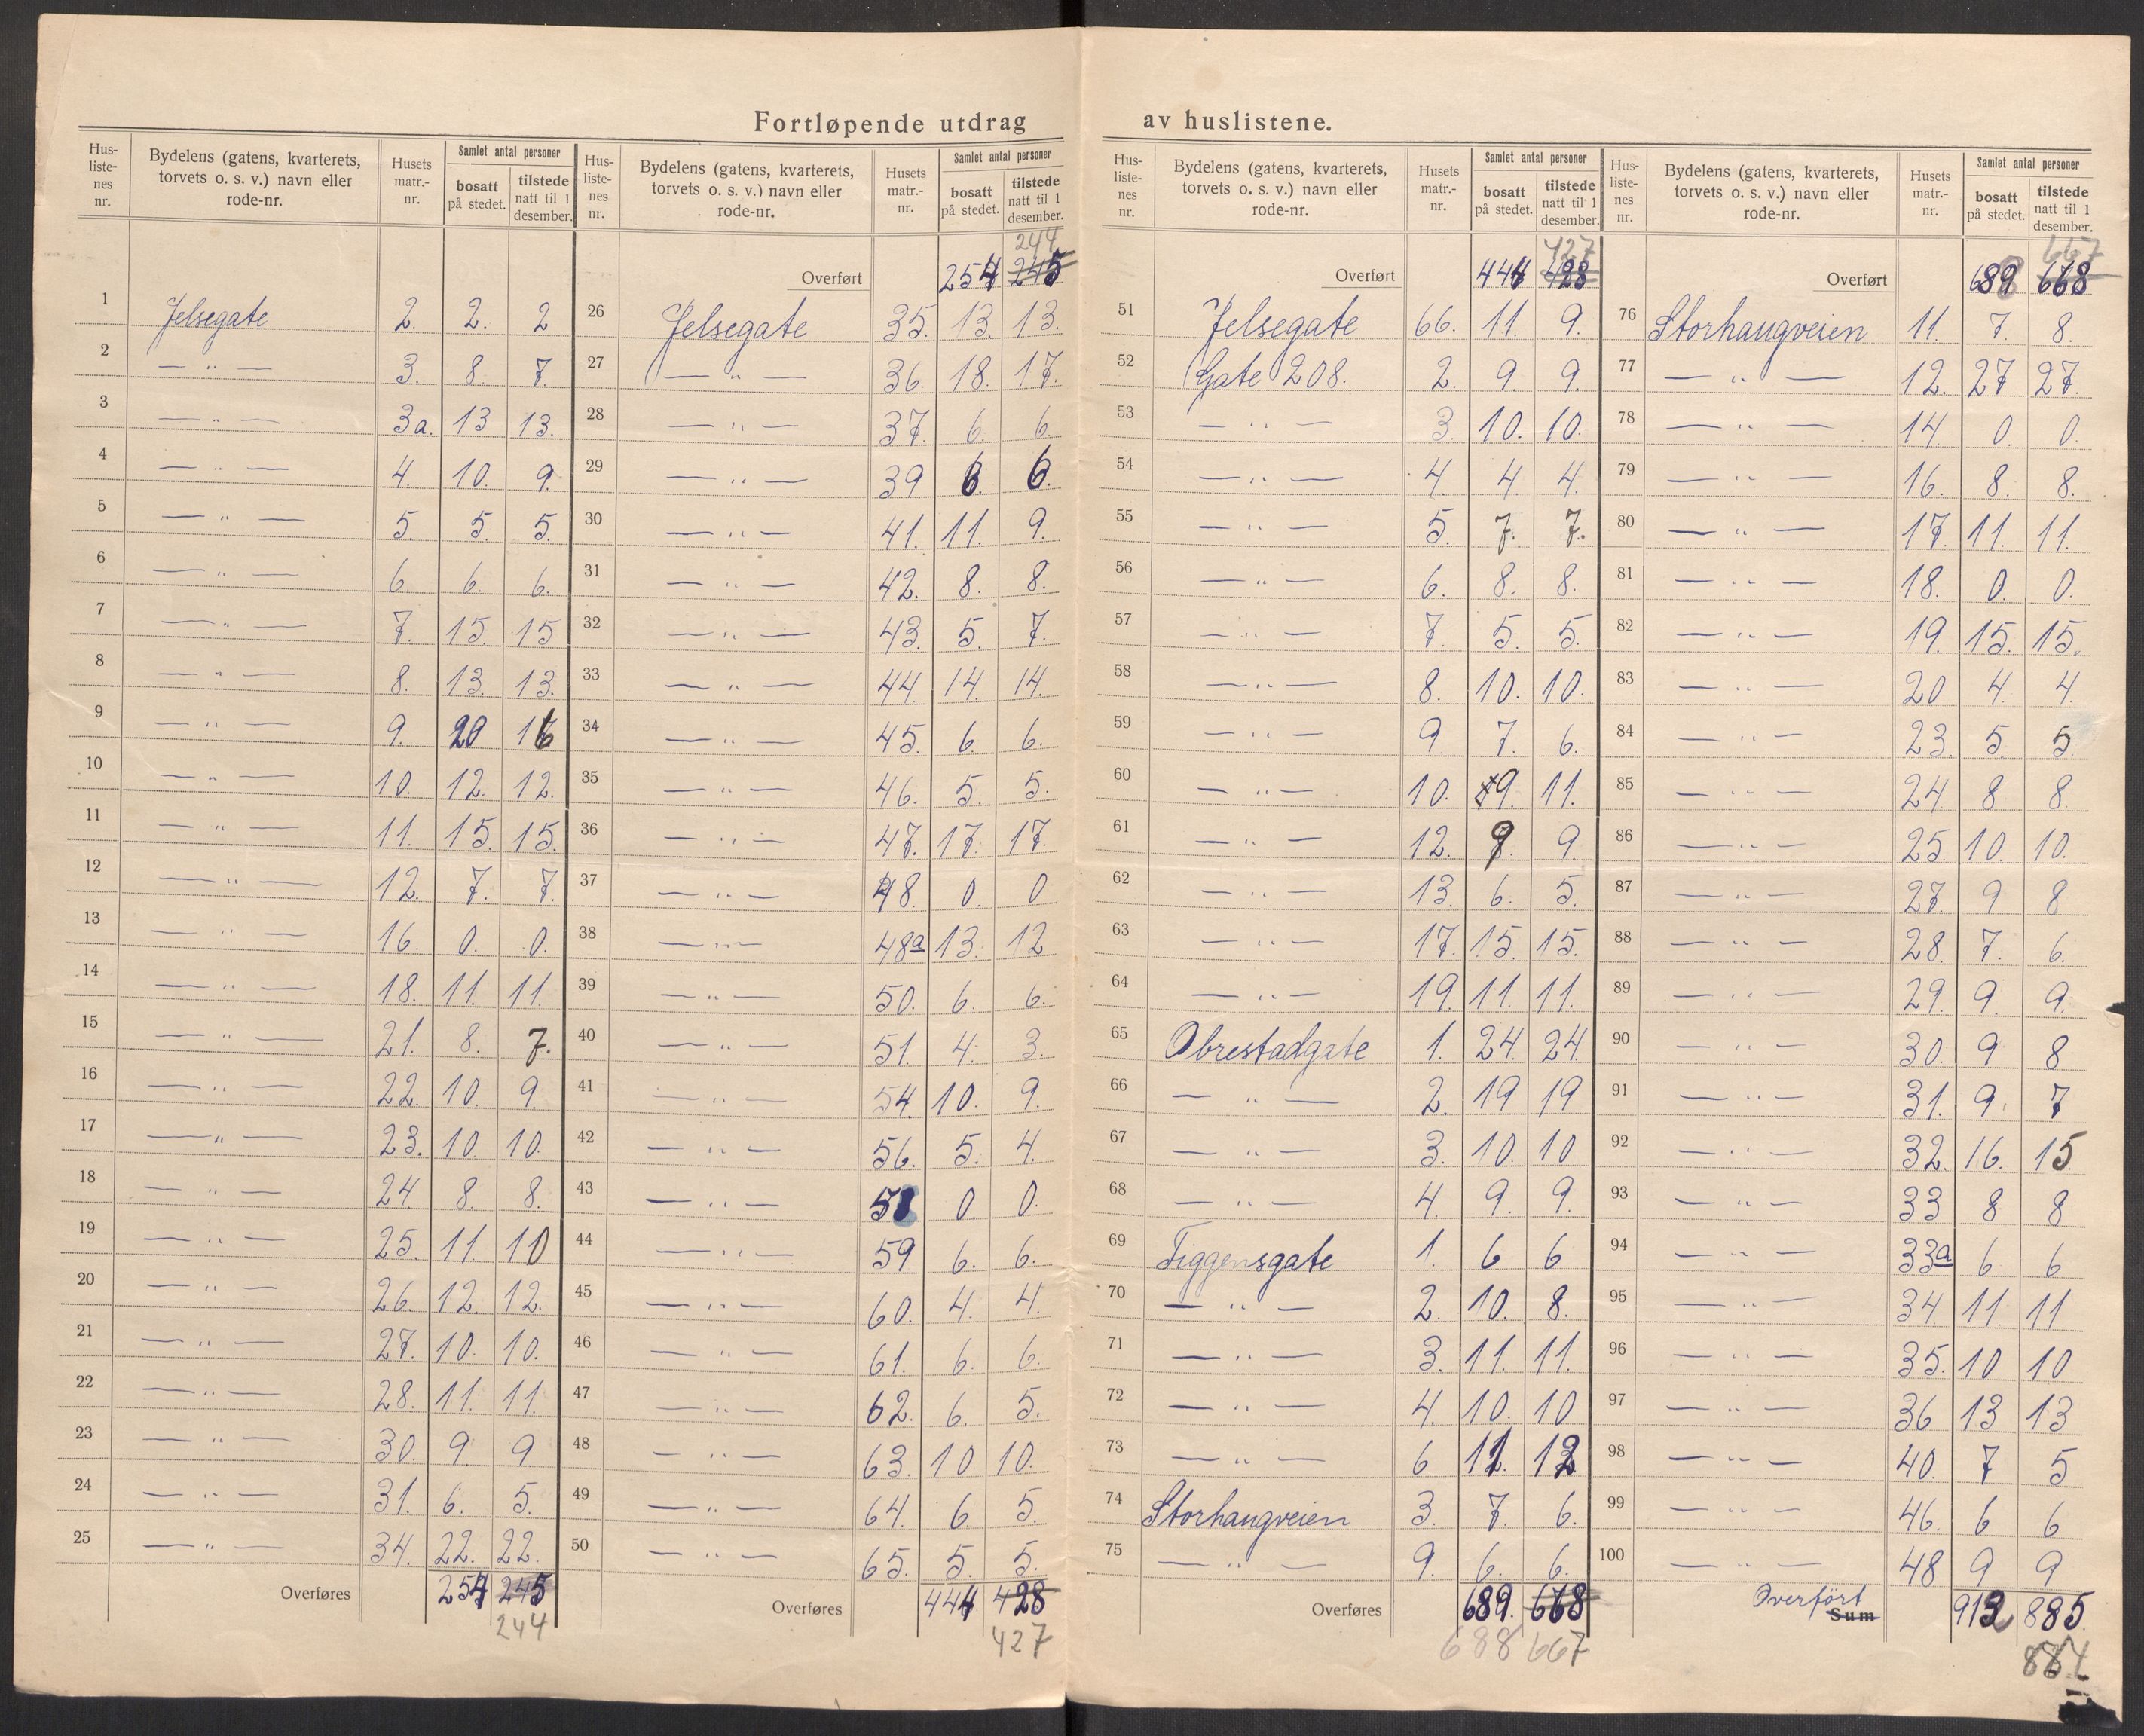 Fortløpende utdrag av huslistene.
Hus-listenes nr. | Bydelens (gatens, kvarterets, torvets o. s. v.) navn eller rode-nr. | Husets matr.-nr. | Samlet antal personer bosatt på stedet. | tilstede natt til 1 desember.
1 Jelsegate 2. 2. 2
2 — „ — 3. 8. 7.
3 — „ — 3a. 13 13.
4 — „ — 4. 10. 9.
5 — „ — 5. 5. 5.
6 — „ — 6. 6. 6.
7 — „ — 7. 15. 15
8 — „ — 8. 13. 13.
9 — „ — 9. 20 16
10 — „ — 10. 12. 12.
11 — „ — 11. 15. 15.
12 — „ — 12. 7. 7.
13 — „ — 16. 0. 0.
14 — „ — 18. 11. 11.
15 — „ — 21. 8. 7.
16 — „ — 22. 10. 9.
17 — „ — 23. 10. 10.
18 — „ — 24. 8. 8.
19 — „ — 25. 11. 10
20 — „ — 26. 12. 12.
21 — „ — 27. 10. 10.
22 — „ — 28. 11. 11.
23 — „ — 30. 9. 9
24 — „ — 31. 6. 5.
25 — „ — 34. 22. 22.
Overføres 254 245
244
Hus-listenes nr. | Bydelens (gatens, kvarterets, torvets o. s. v.) navn eller rode-nr. | Husets matr.-nr. | Samlet antal personer bosatt på stedet. | tilstede natt til 1 desember.
244
Overført 254 245
26 Jelsegate 35. 13. 13.
27 — „ — 36. 18. 17.
28 — „ — 37. 6. 6.
29 — „ — 39 6. 6.
30 — „ — 41. 11. 9.
31 — „ — 42. 8. 8.
32 — „ — 43. 5. 7.
33 — „ — 44. 14. 14.
34 — „ — 45. 6. 6.
35 — „ — 46. 5. 5.
36 — „ — 47. 17. 17.
37 — „ — 48. 0. 0
38 — „ — 48a 13. 12
39 — „ — 50. 6. 6.
40 — „ — 51. 4. 3.
41 — „ — 54. 10. 9.
42 — „ — 56. 5. 4.
43 — „ — 58 0. 0.
44 — „ — 59 6. 6.
45 — „ — 60. 4. 4.
46 — „ — 61. 6. 6.
47 — „ — 62. 6. 5.
48 — „ — 63. 10 10.
49 — „ — 64. 6 5.
50 — „ — 65. 5. 5.
Overføres 444 428
427
Hus-listenes nr. | Bydelens (gatens, kvarterets, torvets o. s. v.) navn eller rode-nr. | Husets matr.-nr. | Samlet antal personer bosatt på stedet. | tilstede natt til 1 desember.
427
Overført 444 428
51 Jelsegate 66. 11. 9.
52 Gate 208. 2. 9. 9.
53 — „ — 3. 10. 10.
54 — „ — 4. 4. 4.
55 — „ — 5. 7. 7.
56 — „ — 6. 8. 8.
57 — „ — 7. 5. 5.
58 — „ — 8. 10. 10.
59 — „ — 9 7. 6.
60 — „ — 10. 9. 11.
61 — „ — 12. 9. 9.
62 — „ — 13. 6. 5.
63 — „ — 17. 15. 15.
64 — „ — 19. 11. 11.
65 Obrestadgate 1. 24. 24.
66 — „ — 2. 19 19
67 — „ — 3. 10. 10
68 — „ — 4. 9. 9.
69 Tiggensgate 1. 6 6
70 — „ — 2. 10. 8.
71 — „ — 3. 11. 11.
72 — „ — 4. 10. 10
73 — „ — 6 11. 12
74 Storhaugveien 3. 7. 6.
75 — „ — 9. 6. 6.
Overføres 689. 668
688 667
Hus-listenes nr. | Bydelens (gatens, kvarterets, torvets o. s. v.) navn eller rode-nr. | Husets matr.-nr. | Samlet antal personer bosatt på stedet. | tilstede natt til 1 desember.
667
Overført 689 668
76 Storhaugveien 11. 7. 8.
77 — „ — 12. 27 27.
78 — „ — 14. 0. 0.
79 — „ — 16. 8. 8.
80 — „ — 17. 11. 11.
81 — „ — 18. 0. 0.
82 — „ — 19. 15. 15.
83 — „ — 20 4. 4.
84 — „ — 23. 5. 5
85 — „ — 24 8 8
86 — „ — 25. 10. 10.
87 — „ — 27. 9 8
88 — „ — 28. 7. 6.
89 — „ — 29. 9. 9.
90 — „ — 30. 9 8
91 — „ — 31. 9. 7
92 — „ — 32. 16. 15
93 — „ — 33 8 8
94 — „ — 33a 6 6
95 — „ — 34. 11. 11
96 — „ — 35. 10 10
97 — „ — 36 13 13
98 — „ — 40. 7 5
99 — „ — 46. 6 6
100 — „ — 48 9 9
Overført Sum 912 885.
884